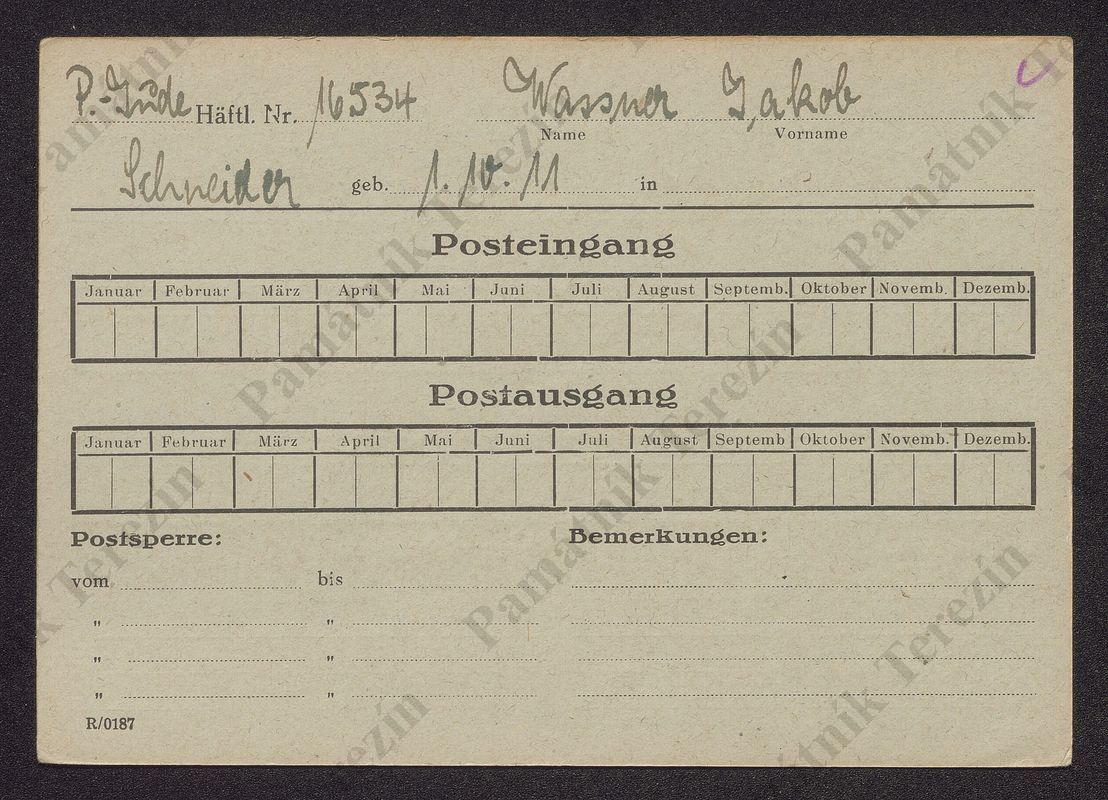 P.-Jude Häftl. Nr. 16534 Wassner Jakob
Name Vorname
Schneider geb. 1. 10. 11 in
Posteingang
Januar Februar März April Mai Juni Juli August Septemb. Oktober Novemb. Dezemb.
Postausgang
Januar Februar März April Mai Juni Juli August Septemb Oktober Novemb. Dezemb.
Postsperre: Bemerkungen:
vom bis
" "
" "
" "
R/0187
Památník Terezín